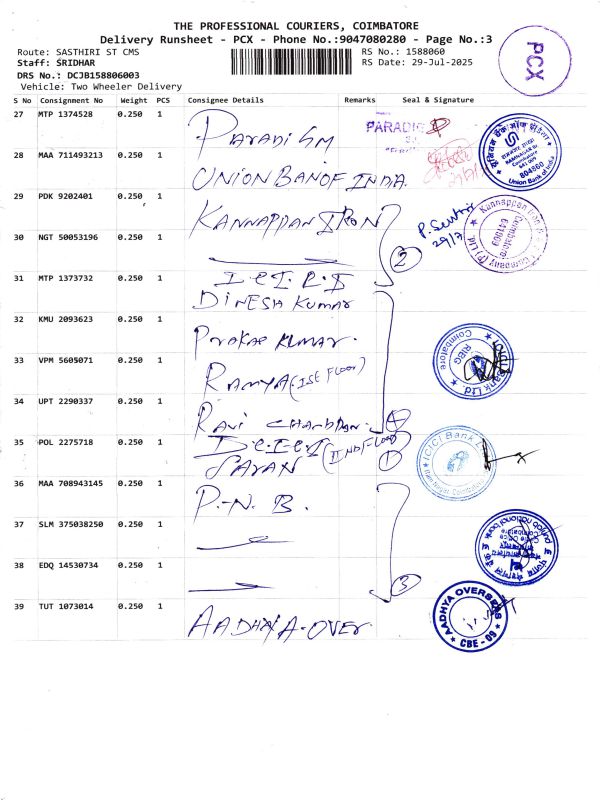 THE PROFESSIONAL COURIERS, COIMBATORE
Delivery Runsheet - PCX - Phone No.:9047080280 - Page No.:3
Route: SASTHIRI ST CMS
RS No.: 1588060
Staff: SRIDHAR
RS Date: 29-Jul-2025
DRS No.: DCJB158806003
Vehicle: Two Wheeler Delivery
PCX
S No Consignment No Weight PCS Consignee Details Remarks Seal & Signature
27 MTP 1374528 0.250 1 PARADIGM PARADIG
28 MAA 711493213 0.250 1 UNION BANOF INDIA. Union Bank of India 804860
29 PDK 9202401 0.250 1 KANNAPPAN IRON P. Senthil 29/7 Kannappan Iron Company (P) Ltd. Coimbatore 641009
30 NGT 50053196 0.250 1 2
31 MTP 1373732 0.250 1 I.C.I.C.I
DINESH KUMAR
32 KMU 2093623 0.250 1 Prakas Kumar. ICICI Bank Ltd. RIBG Coimbatore
33 VPM 5605071 0.250 1 RAMYA (IST FLOOR)
34 UPT 2290337 0.250 1 RAVI CHANDRAN. 4
35 POL 2275718 0.250 1 I.C.I.C.I (IIND FLOOR) 1 ICICI Bank Ram Nagar, Coimbatore
SARAN
36 MAA 708943145 0.250 1 P.N.B.
37 SLM 375038250 0.250 1 punjab national bank
38 EDQ 14530734 0.250 1 3
39 TUT 1073014 0.250 1 AADHYA-OVER. AADHYA OVERSEAS CBE - 09